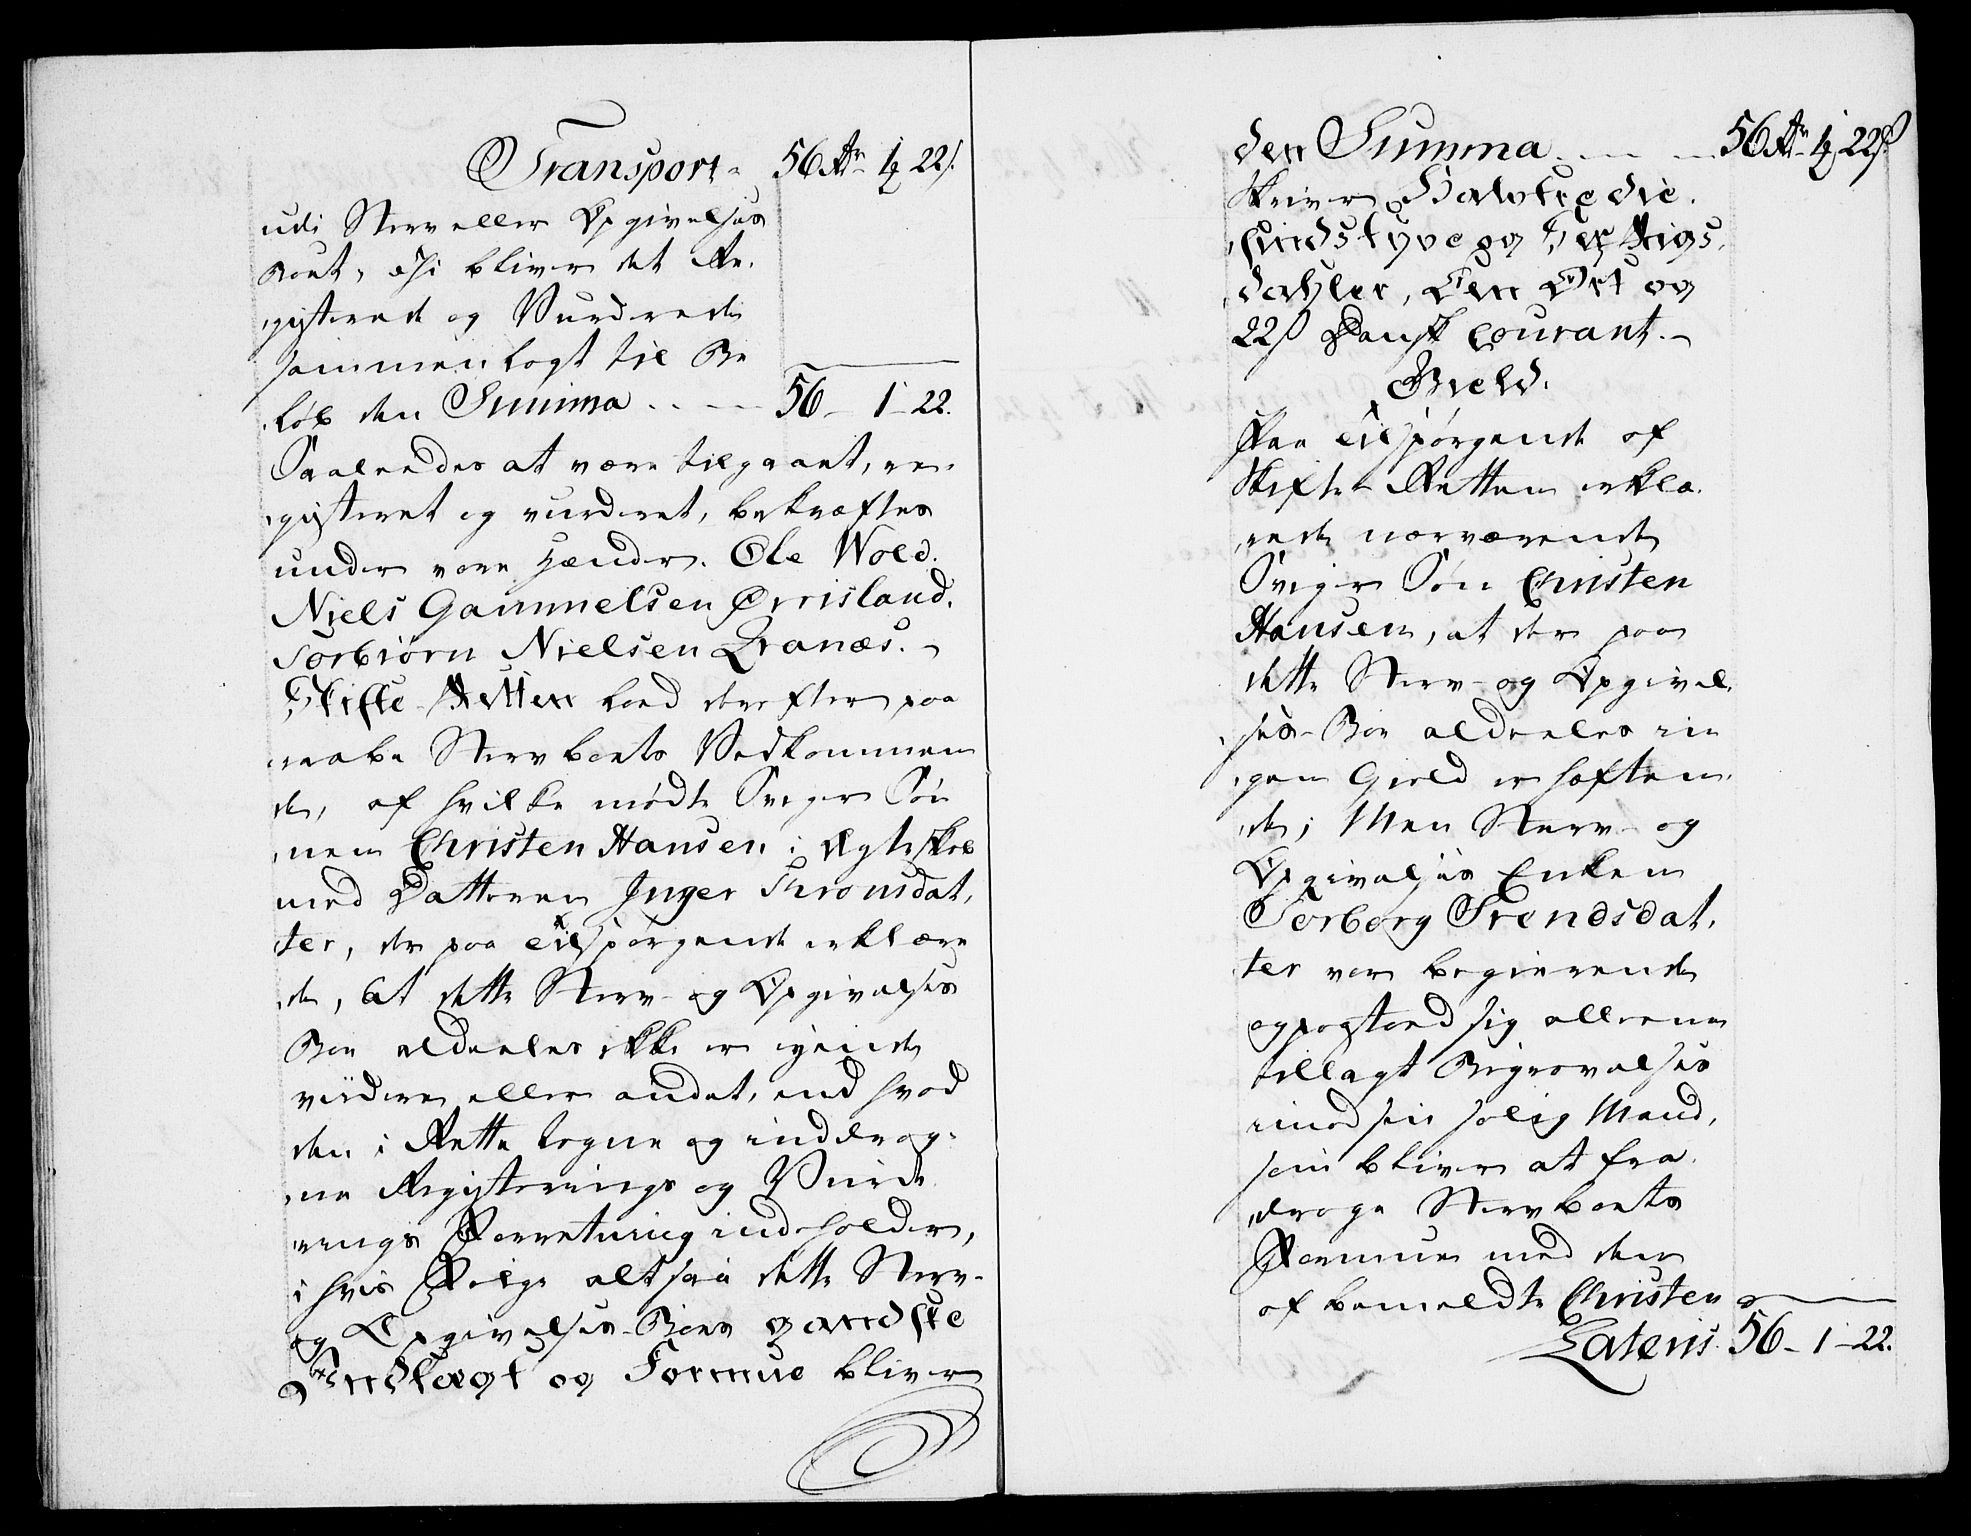 Transport 56 Rdr 1 22 s.
udi Sterv eller Opgivelses
Boet, Thi bliver det Re-
gisterede og Vurderede
sammenlagt til Be-
løb den Summa 56 - 1 - 22.
Saaledes at være tilgaaet, re-
gisteret og vurderet, bekræftes
under vore Hænder. Ole Wold.
Niels Gammelsen Errisland.
Torbiørn Nielsen Qvanæs.
Skifte-Retten lood derefter paa
raabe Stervboets Vedkommen
de, af hvilke mødte Sviger Søn
nen Christen Hansen i Ægteskab
med Datteren Inger Thronsdat-
ter, der paa tilspørgende erklære
de, at dette Sterv- og Opgivelses
Boe aldeeles ikke er eyende
viidere eller andet, end hvad
den i Rette lagne og inddrag-
ne Registerings og Vurde
rings Forretning indeholder,
i hvis Følge altsaa dette Sterv-
og Opgivelses-Boes gandske
Indtægt og Formue bliver
den Summa 56 Rdr 1 22 s
Skriver Halvtredie
sindstyve og Sex Rigs-
dahler, Een Ort og
22 s Dansk Courant.
Gield.
Paa tilspørgende af
Skifte-Retten erklæ-
rede nærværende
Sviger Søn Christen
Hansen, at der paa
dette Sterv- og Opgivel-
ses-Boe aldeeles in
gen Gield er hæften-
de; Men Sterv- og
Opgivelses Enken
Torborg Trondsdat-
ter var begierende
og paastoed sig alleene
tillagt Begravelses
imod sin salig Mand,
som bliver at fra-
drage Stervboets
Formue med den
af bemeldte Christen
Lateris 56 - 1 - 22.